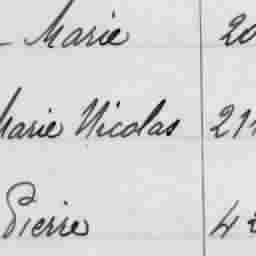 - Marie 20
Marie Nicolas 21
Pierre 4